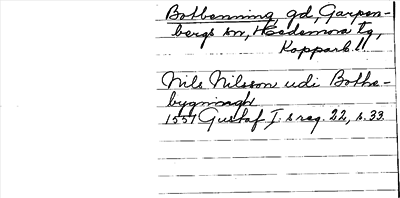 Botbenning gd, Garpen-
bergs sn, Hedemora tg,
Kopparb. l.
Nils Nilsson udi Bothe-
bygningh
1551 Gustaf I:s reg. 22, s. 33.